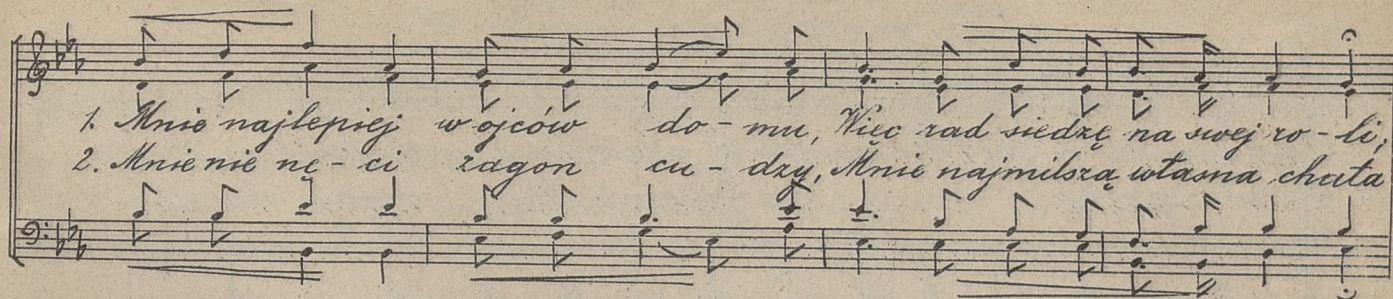 1. Mnie najlepiej w ojców do-mu, Więc rad siedzę na swej ro-li;
2. Mnie nie nę-ci zagon cu-dzy, Mnie najmilszą własna chata